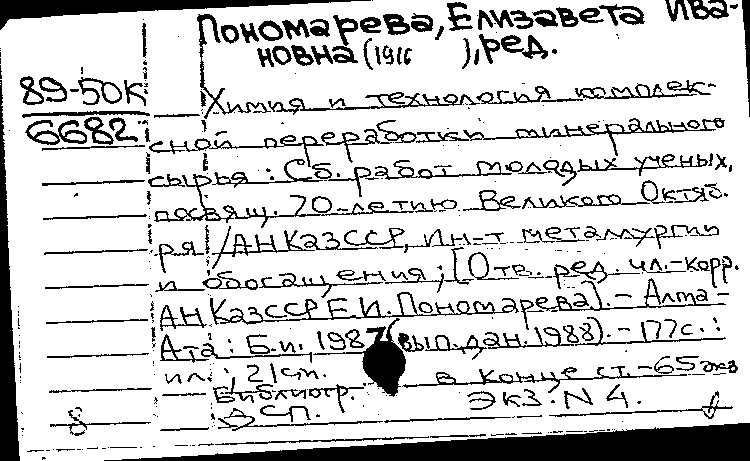 Пономарева, Елизавета Ива-
новна (1916 ), ред.
89-50К
6682
Химия и технология комплек-
сной переработки минерального
сырья : Сб. работ молодых ученых,
посвящ. 70-летию Великого Октяб.
ря / АН КазССР, Ин-т металлургии
и обогащения ; [Отв. ред. чл.-корр.
АН КазССР Е.И. Пономарева]. - Алма-
Ата : Б.и., 1987 (вып.дан. 1988). - 177с. :
ил. ; 21см.
Библиогр. в конце ст. - 65 экз
ДСП. Экз. N 4.
8